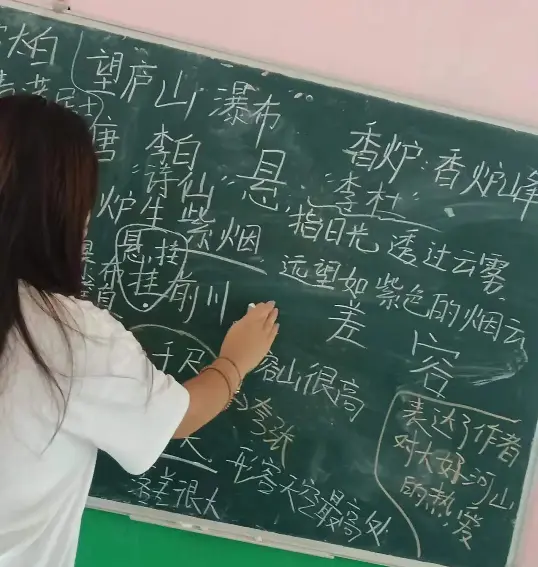 望庐山瀑布
唐 李白
"诗仙"
"李杜"
悬
香炉:香炉峰
炉生紫烟
指日光透过云雾
远望如紫色的烟云
悬 挂
布挂前川
差
容
千尺
山很高
夸张
天
形容天空最高处
落差很大
表达了作者
对大好河山
的热爱